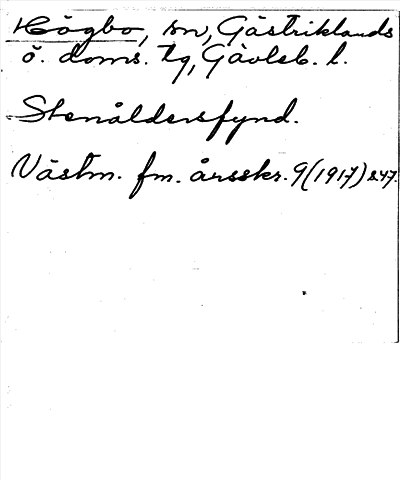 Högbo, sn, Gästriklands
ö. doms. tg, Gävleb. l.
Stenåldersfynd.
Västm. fm. årsskr. 9 (1917) s. 47.